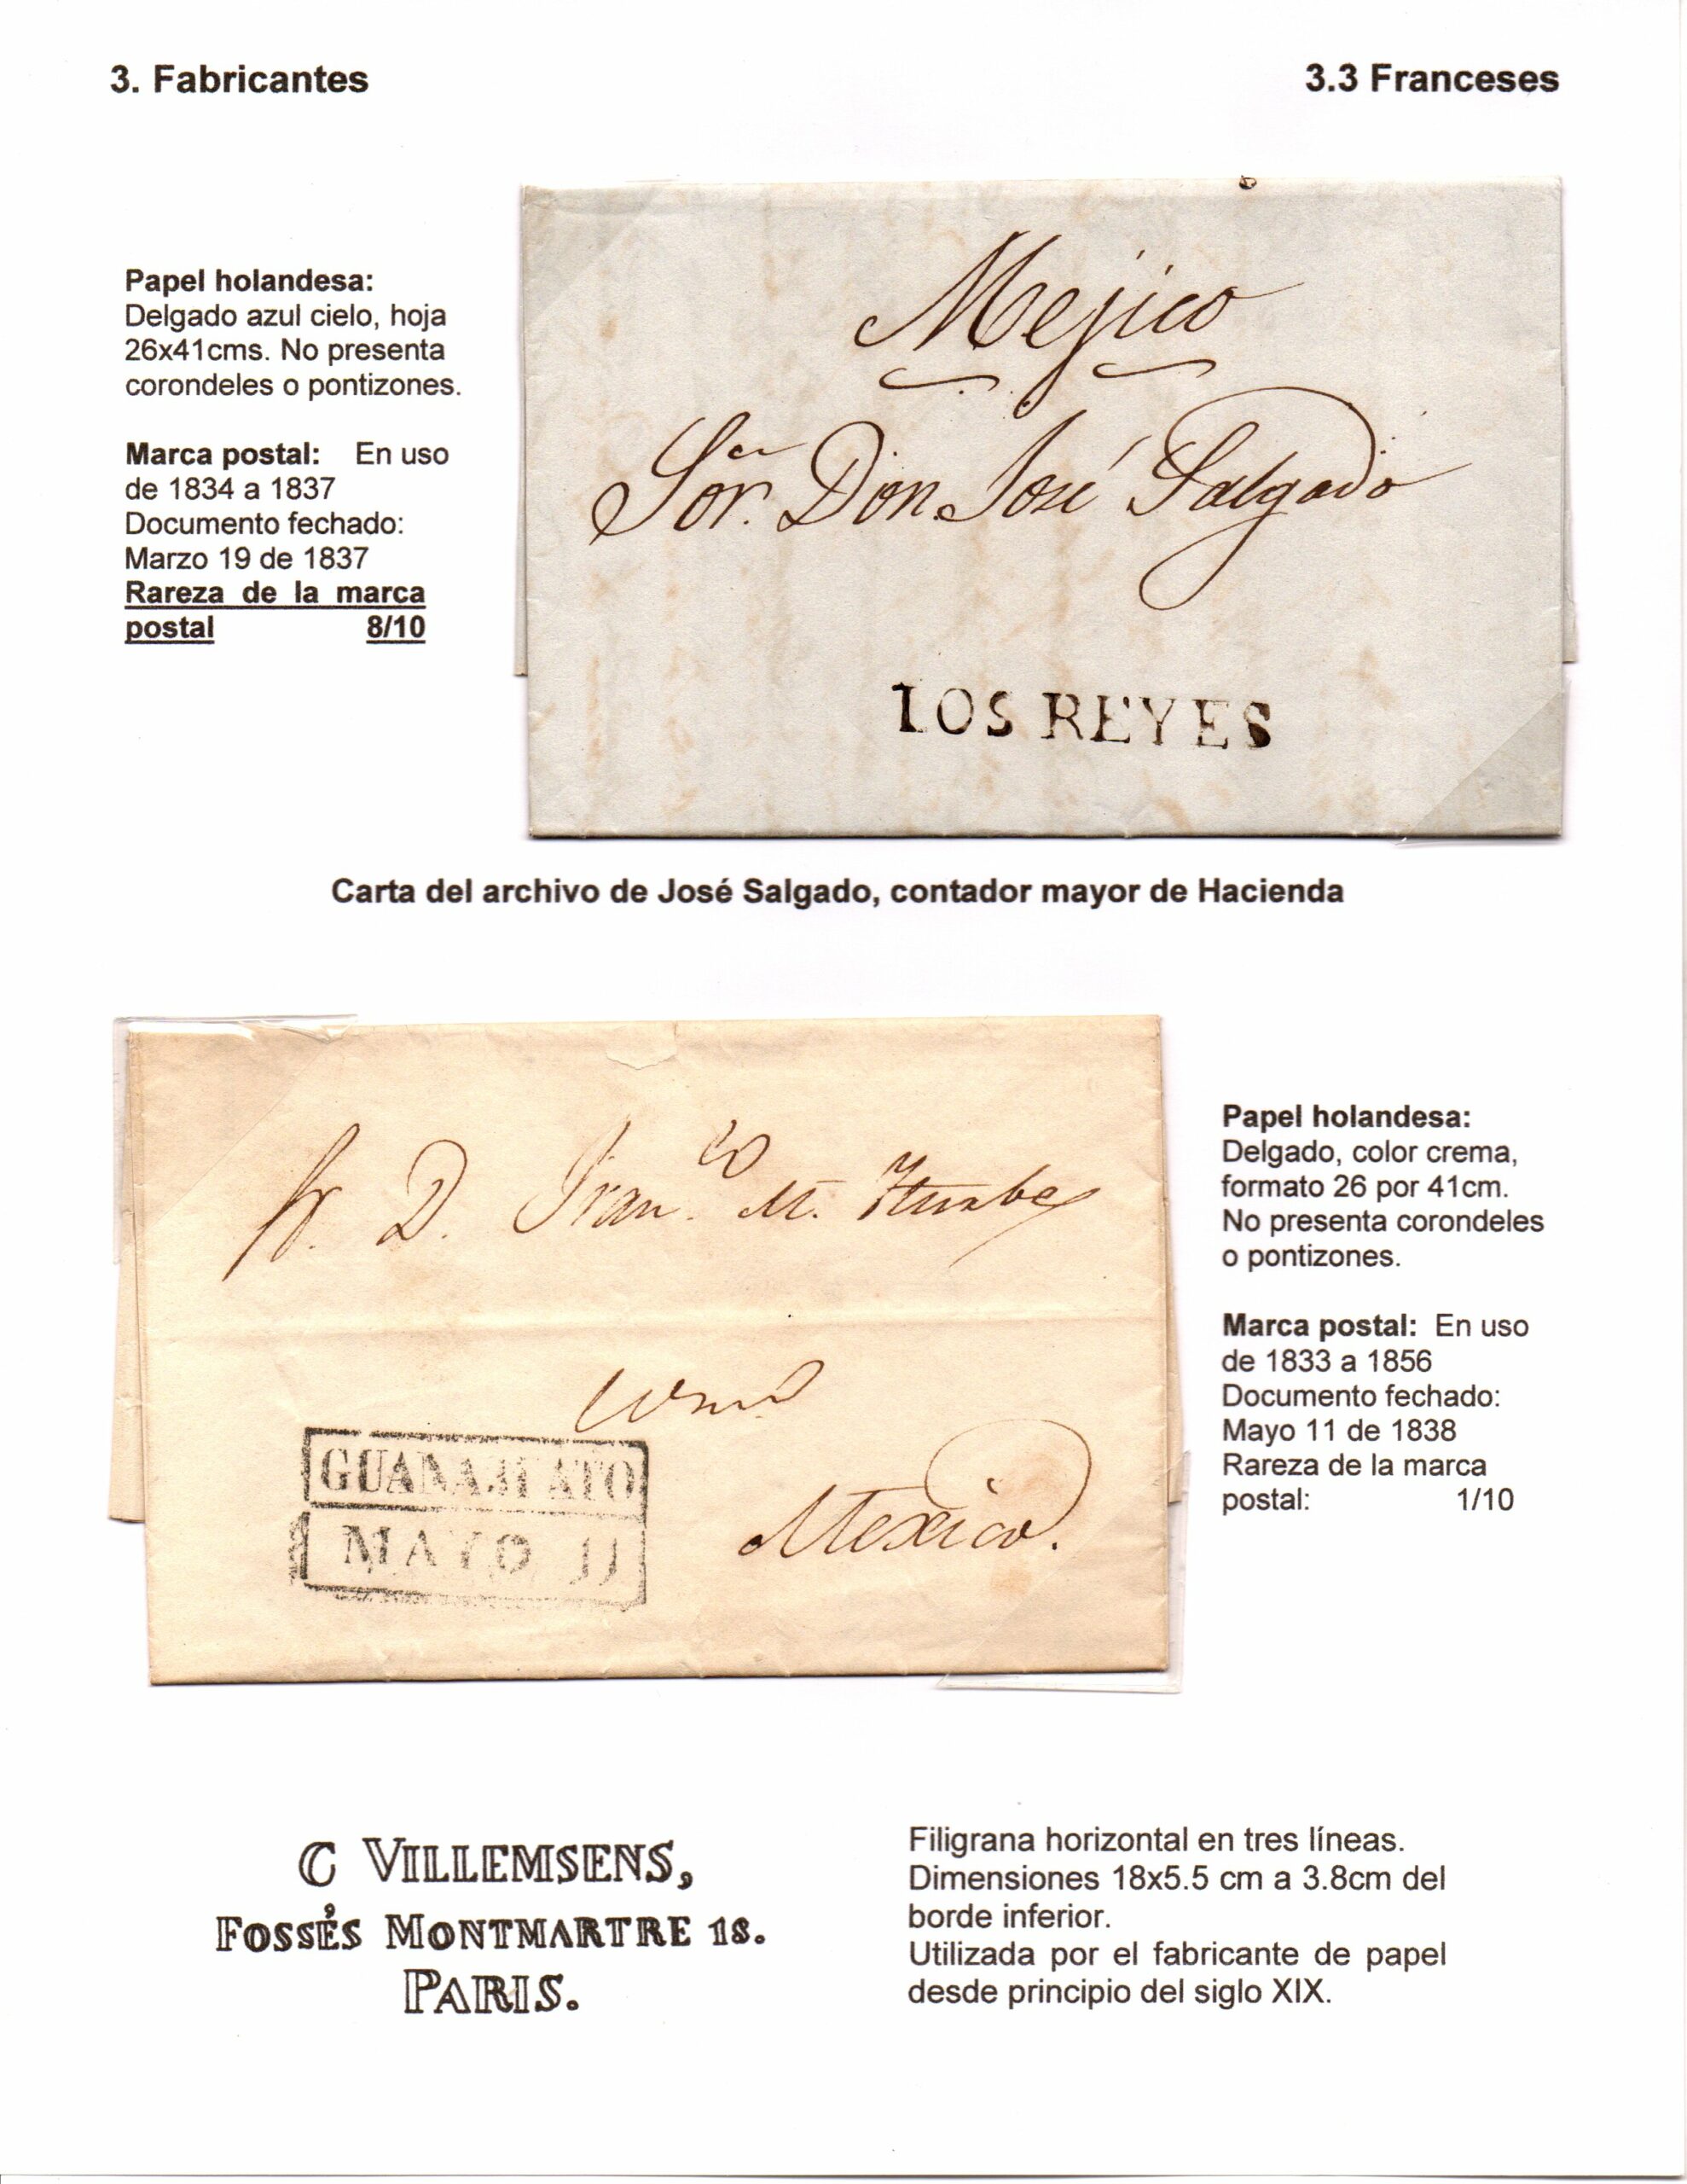 3. Fabricantes
3.3 Franceses
Papel holandesa:
Delgado azul cielo, hoja
26x41cms. No presenta
corondeles o pontizones.
Marca postal: En uso
de 1834 a 1837
Documento fechado:
Marzo 19 de 1837
Rareza de la marca
postal 8/10
Mejico
Sor. Don José Salgado
LOS REYES
Carta del archivo de José Salgado, contador mayor de Hacienda
Sr. D. Franco. M. Iturbe
GUANAJUATO
MAYO 11
Mexico.
Papel holandesa:
Delgado, color crema,
formato 26 por 41cm.
No presenta corondeles
o pontizones.
Marca postal: En uso
de 1833 a 1856
Documento fechado:
Mayo 11 de 1838
Rareza de la marca
postal: 1/10
C VILLEMSENS,
FOSSÉS MONTMARTRE 18.
PARIS.
Filigrana horizontal en tres líneas.
Dimensiones 18x5.5 cm a 3.8cm del
borde inferior.
Utilizada por el fabricante de papel
desde principio del siglo XIX.